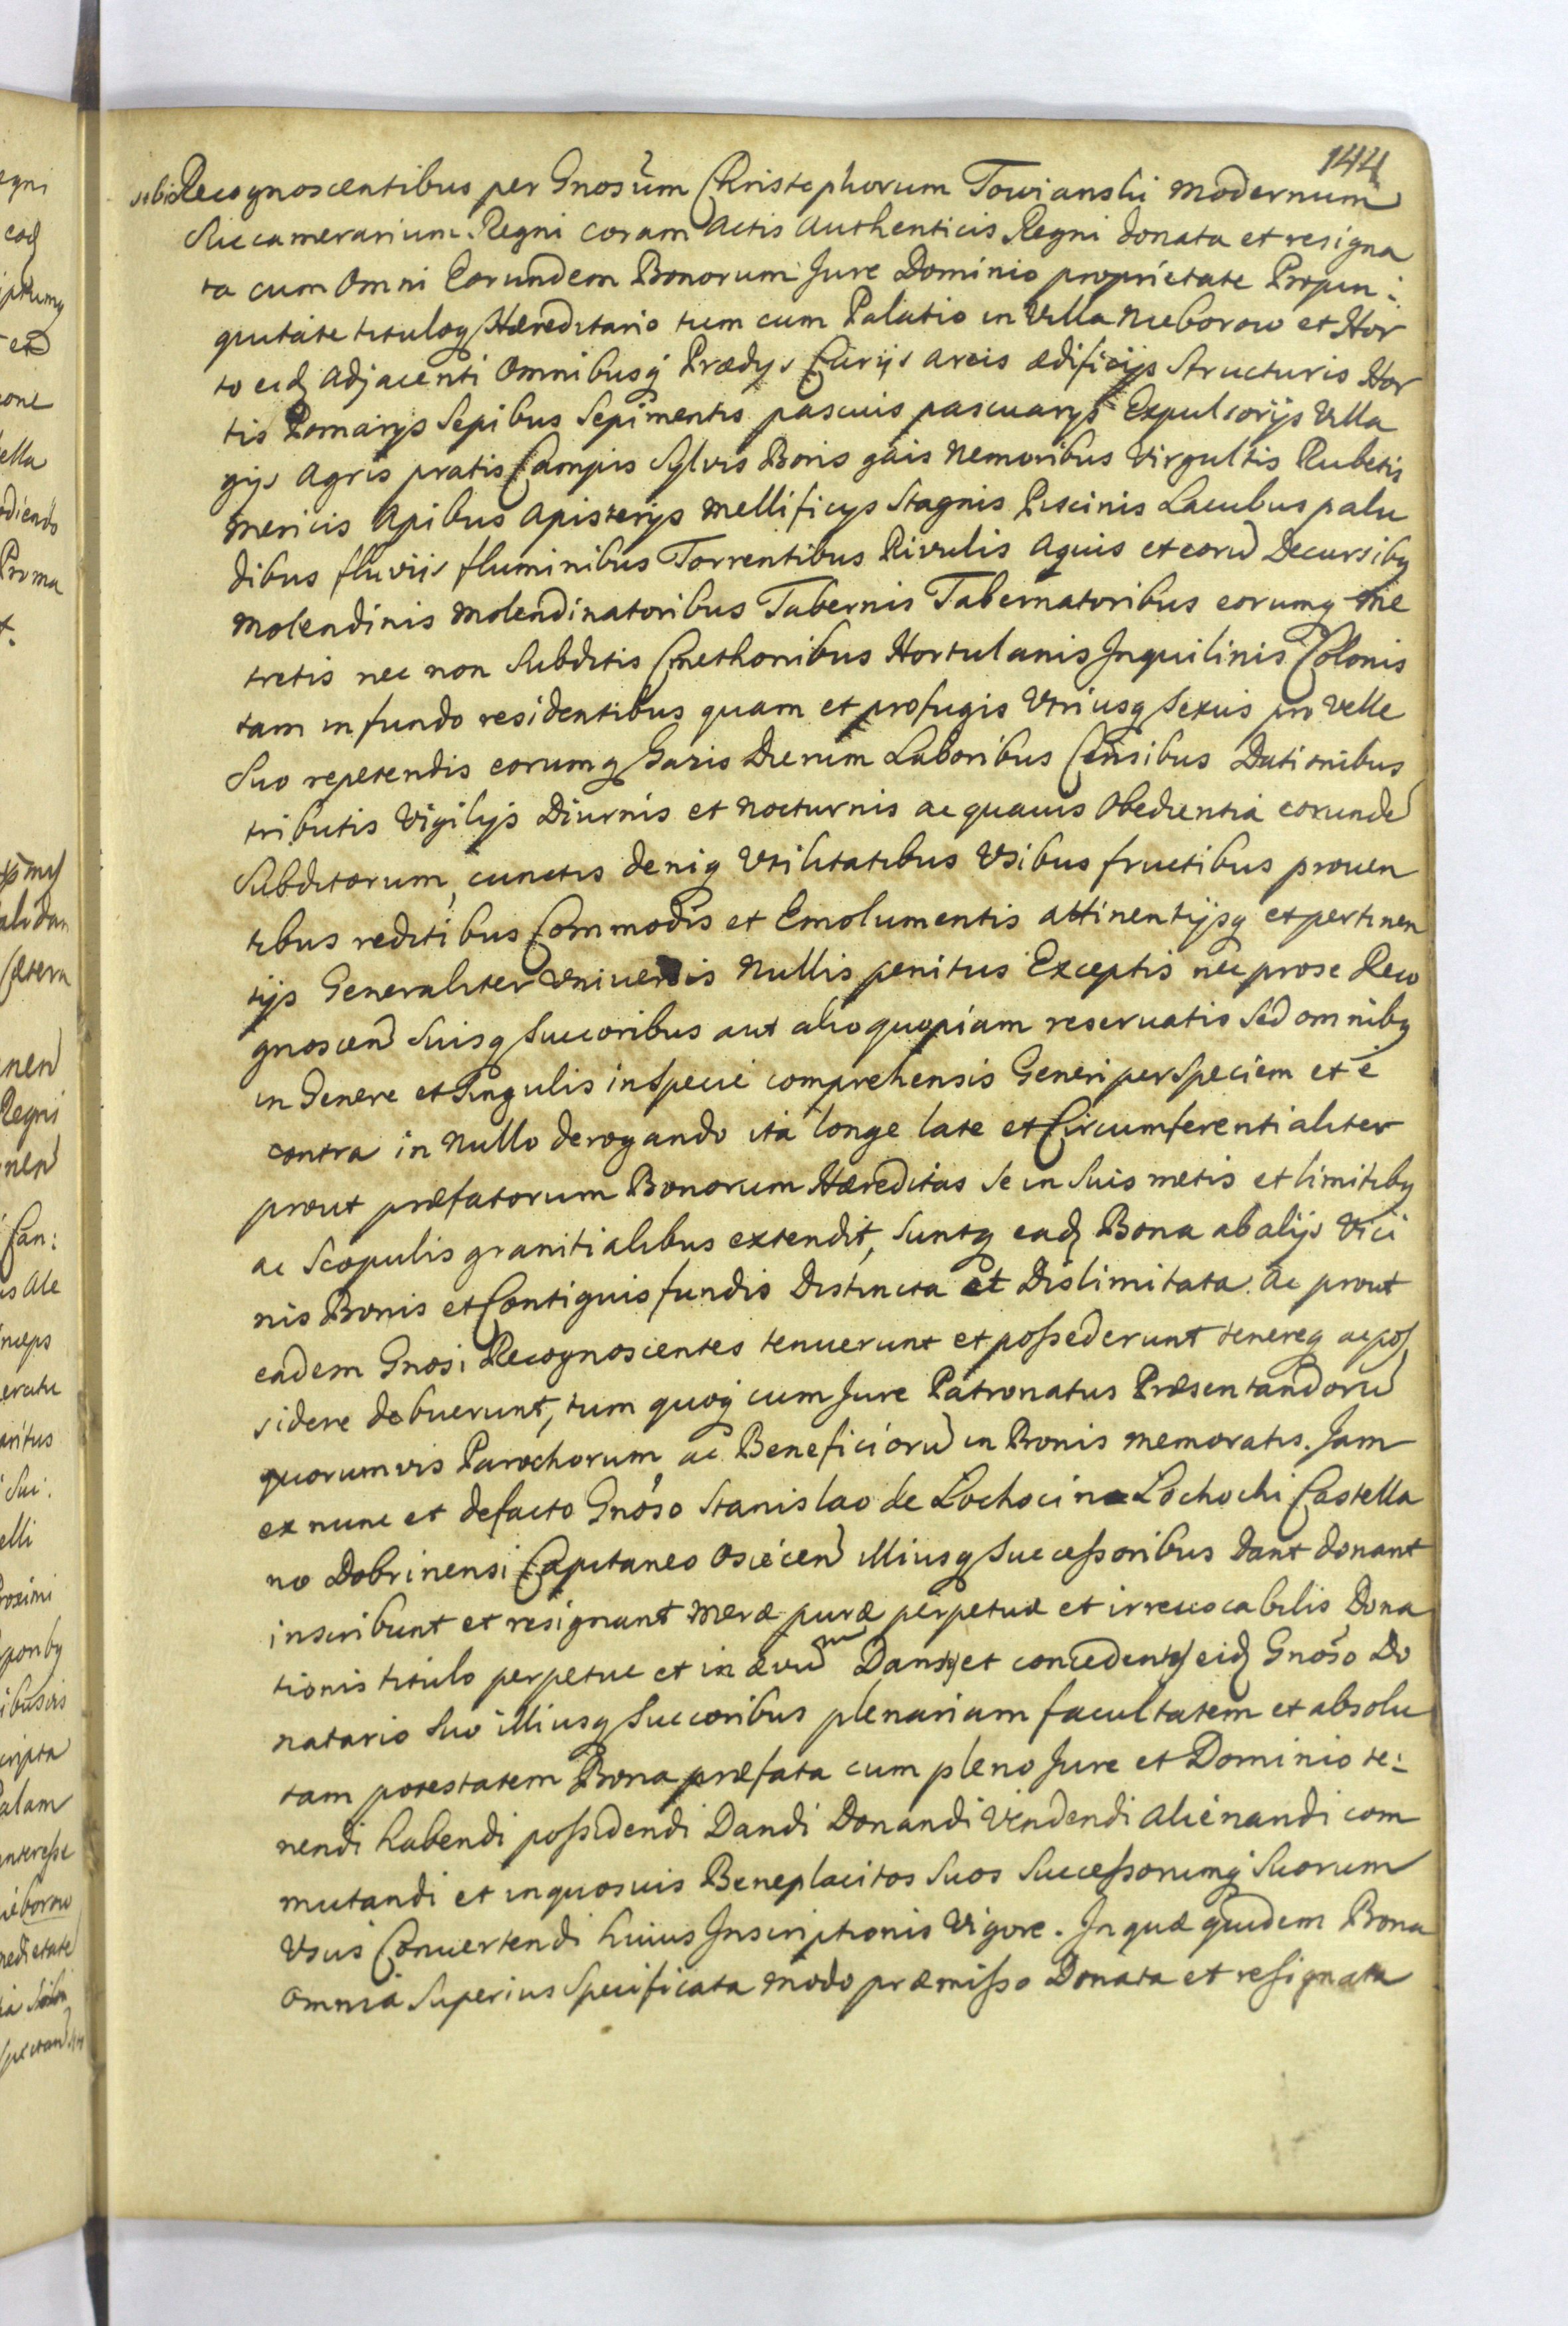 144
sibi Recognoscentibus per Gnosum Christophorum Towianski modernum
Succamerarium Regni coram Actis Authenticis Regni donata et resigna
ta cum Omni Eorundem Bonorum Jure Dominio proprietate Propin:
quitate tituloq Hæreditario tum cum Palatio in Villa Nieborow et Hor
to eidq Adjacenti Omnibusq Prædys Curijs areis ædificijs Structuris Hor
tis Pomarijs Sepibus Sepimentis pascuis pascuarys Expulsorijs Villa
gijs Agris pratis Campis Sylvis Boris gais Nemoribus Virgultis Rubetis
Mericis Apibus Apisterijs Mellificijs Stagnis Piscinis Lacubus palu
dibus fluviis fluminibus Torrentibus Rivulis Aquis et eorum Decursibq
Molendinis Molendinatoribus Tabernis Tabernatoribus eorumq Me
tretis nec non Subditis Cmethonibus Hortulanis Inquilinis Colonis
tam in fundo residentibus quam et profugis Utriusq Sexus pro Velle
Suo repetendis eorumq Gazis Dierum Laboribus Censibus Dationibus
tributis Vigilijs Diurnis et Nocturnis ac quavis Obedientia eorunde
Subditorum, cunctis deniq Utilitatibus Usibus fructibus proven
tibus reditibus Commodis et Emolumentis attinentijsq et pertinen
tijs Generaliter Universis Nullis penitus Exceptis nec pro se Reco
gnoscen Suisq Succoribus aut alio quopiam reservatis Sed omnibq
in Genere et Singulis in Specie comprehensis Generi per Speciem et é
contra in Nullo derogando ita longe late et Circumferentialiter
prout præfatorum Bonorum Hæreditas Se in Suis metis et limitibq
ac Scopulis granitialibus extendit, Suntq eadq Bona ab alijs Vici
nis Bonis et Contiguis fundis Distincta et Dislimitata. Ac prout
eadem Gnosi Recognoscentes tenuerunt et possederunt tenereq ac pos
sidere debuerunt, tum quoq cum Jure Patronatus Præsentandoru
quorumvis Parochorum ac Beneficioru in Bonis memoratis. Jam
ex nunc et de facto Gnoso Stanislao de Lochocin Lochocki Castella
no Dobrinensi Capitaneo Osiecen illiusq Successoribus Dant donant
inscribunt et resignant Meræ puræ perpetuæ et irrevocabilis Dona
tionis titulo perpetue et in ævum Dantq et concedentq eidq Gnoso Do
natario Suo illiusq Succoribus plenariam facultatem et absolu
tam potestatem Bona præfata cum pleno Jure et Dominio te:
nendi habendi possidendi Dandi Donandi Vendendi Alienandi com
mutandi et in quosvis Beneplacitos Suos Successorumq Suorum
Usus Convertendi huius Inscriptionis Vigore. In quæ quidem Bona
Omnia Superius Specificata modo præmisso Donata et resignata